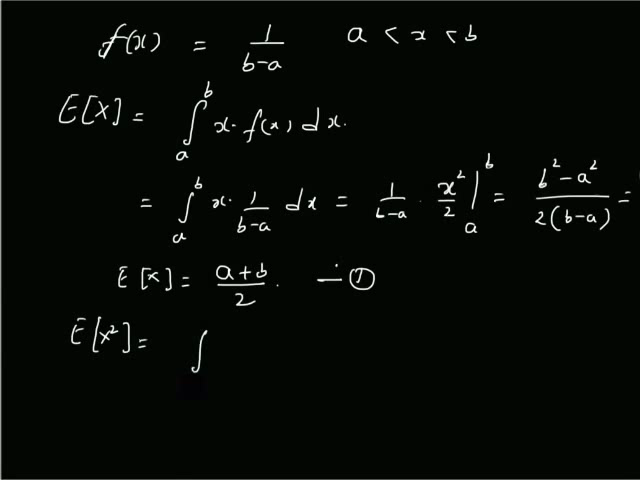 f(x) = 1/(b-a) a < x < b
E[X] = ∫_a^b x · f(x) dx.
= ∫_a^b x · 1/(b-a) dx = 1/(b-a) · x²/2 |_a^b = (b² - a²)/(2(b-a)) =
E[x] = (a+b)/2 . — ①
E[x²] = ∫